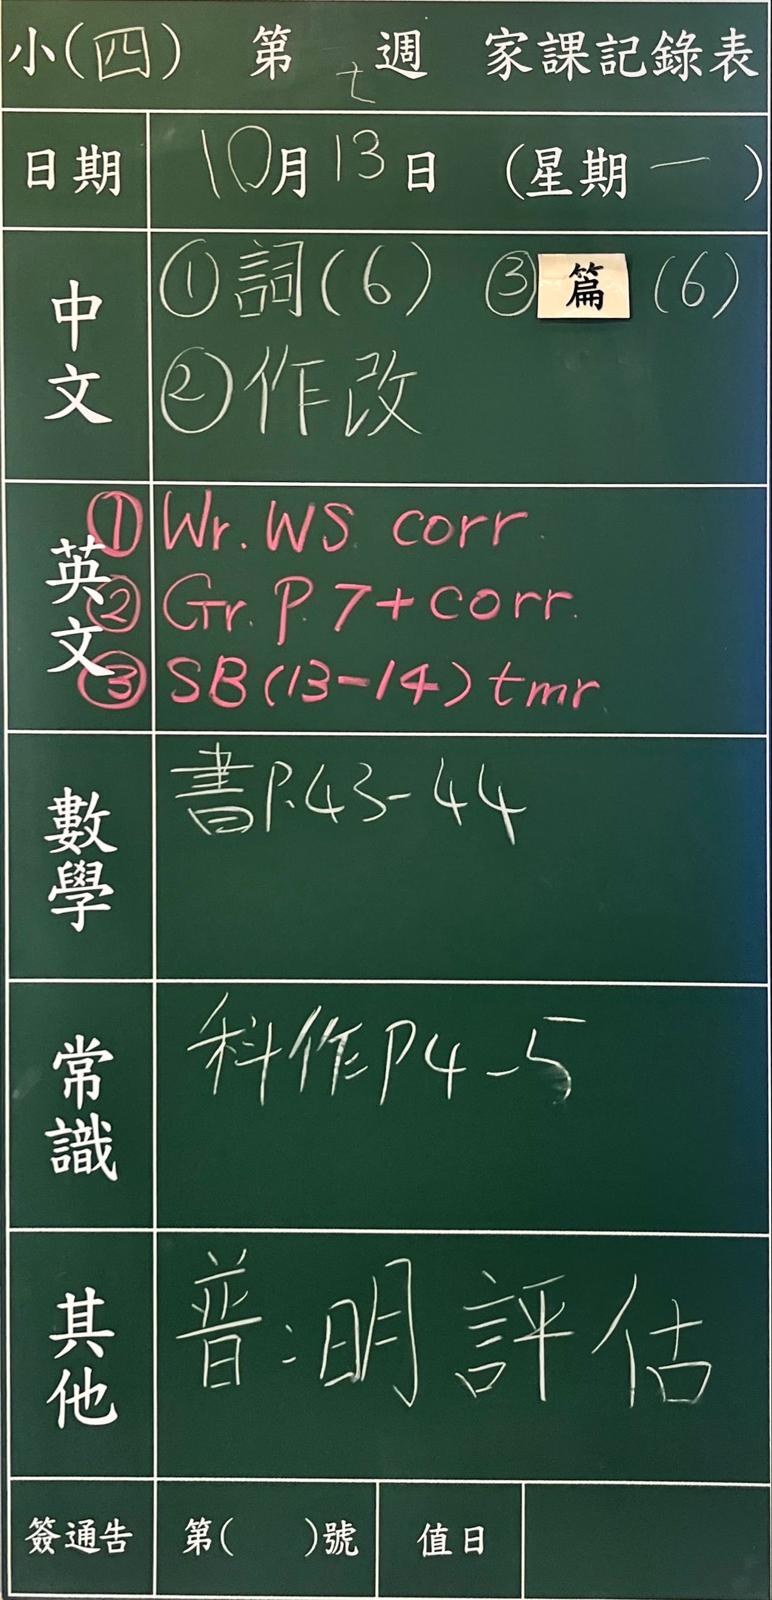 小(四) 第七週 家課記錄表
日期 10月13日 (星期一)
中文 ①詞(6) ③篇(6)
②作改
英文 ①Wr. WS corr.
②Gr. P.7+corr.
③SB(13-14)tmr
數學 書P.43-44
常識 科作P4-5
其他 普:明評估
簽通告 第( )號 值日